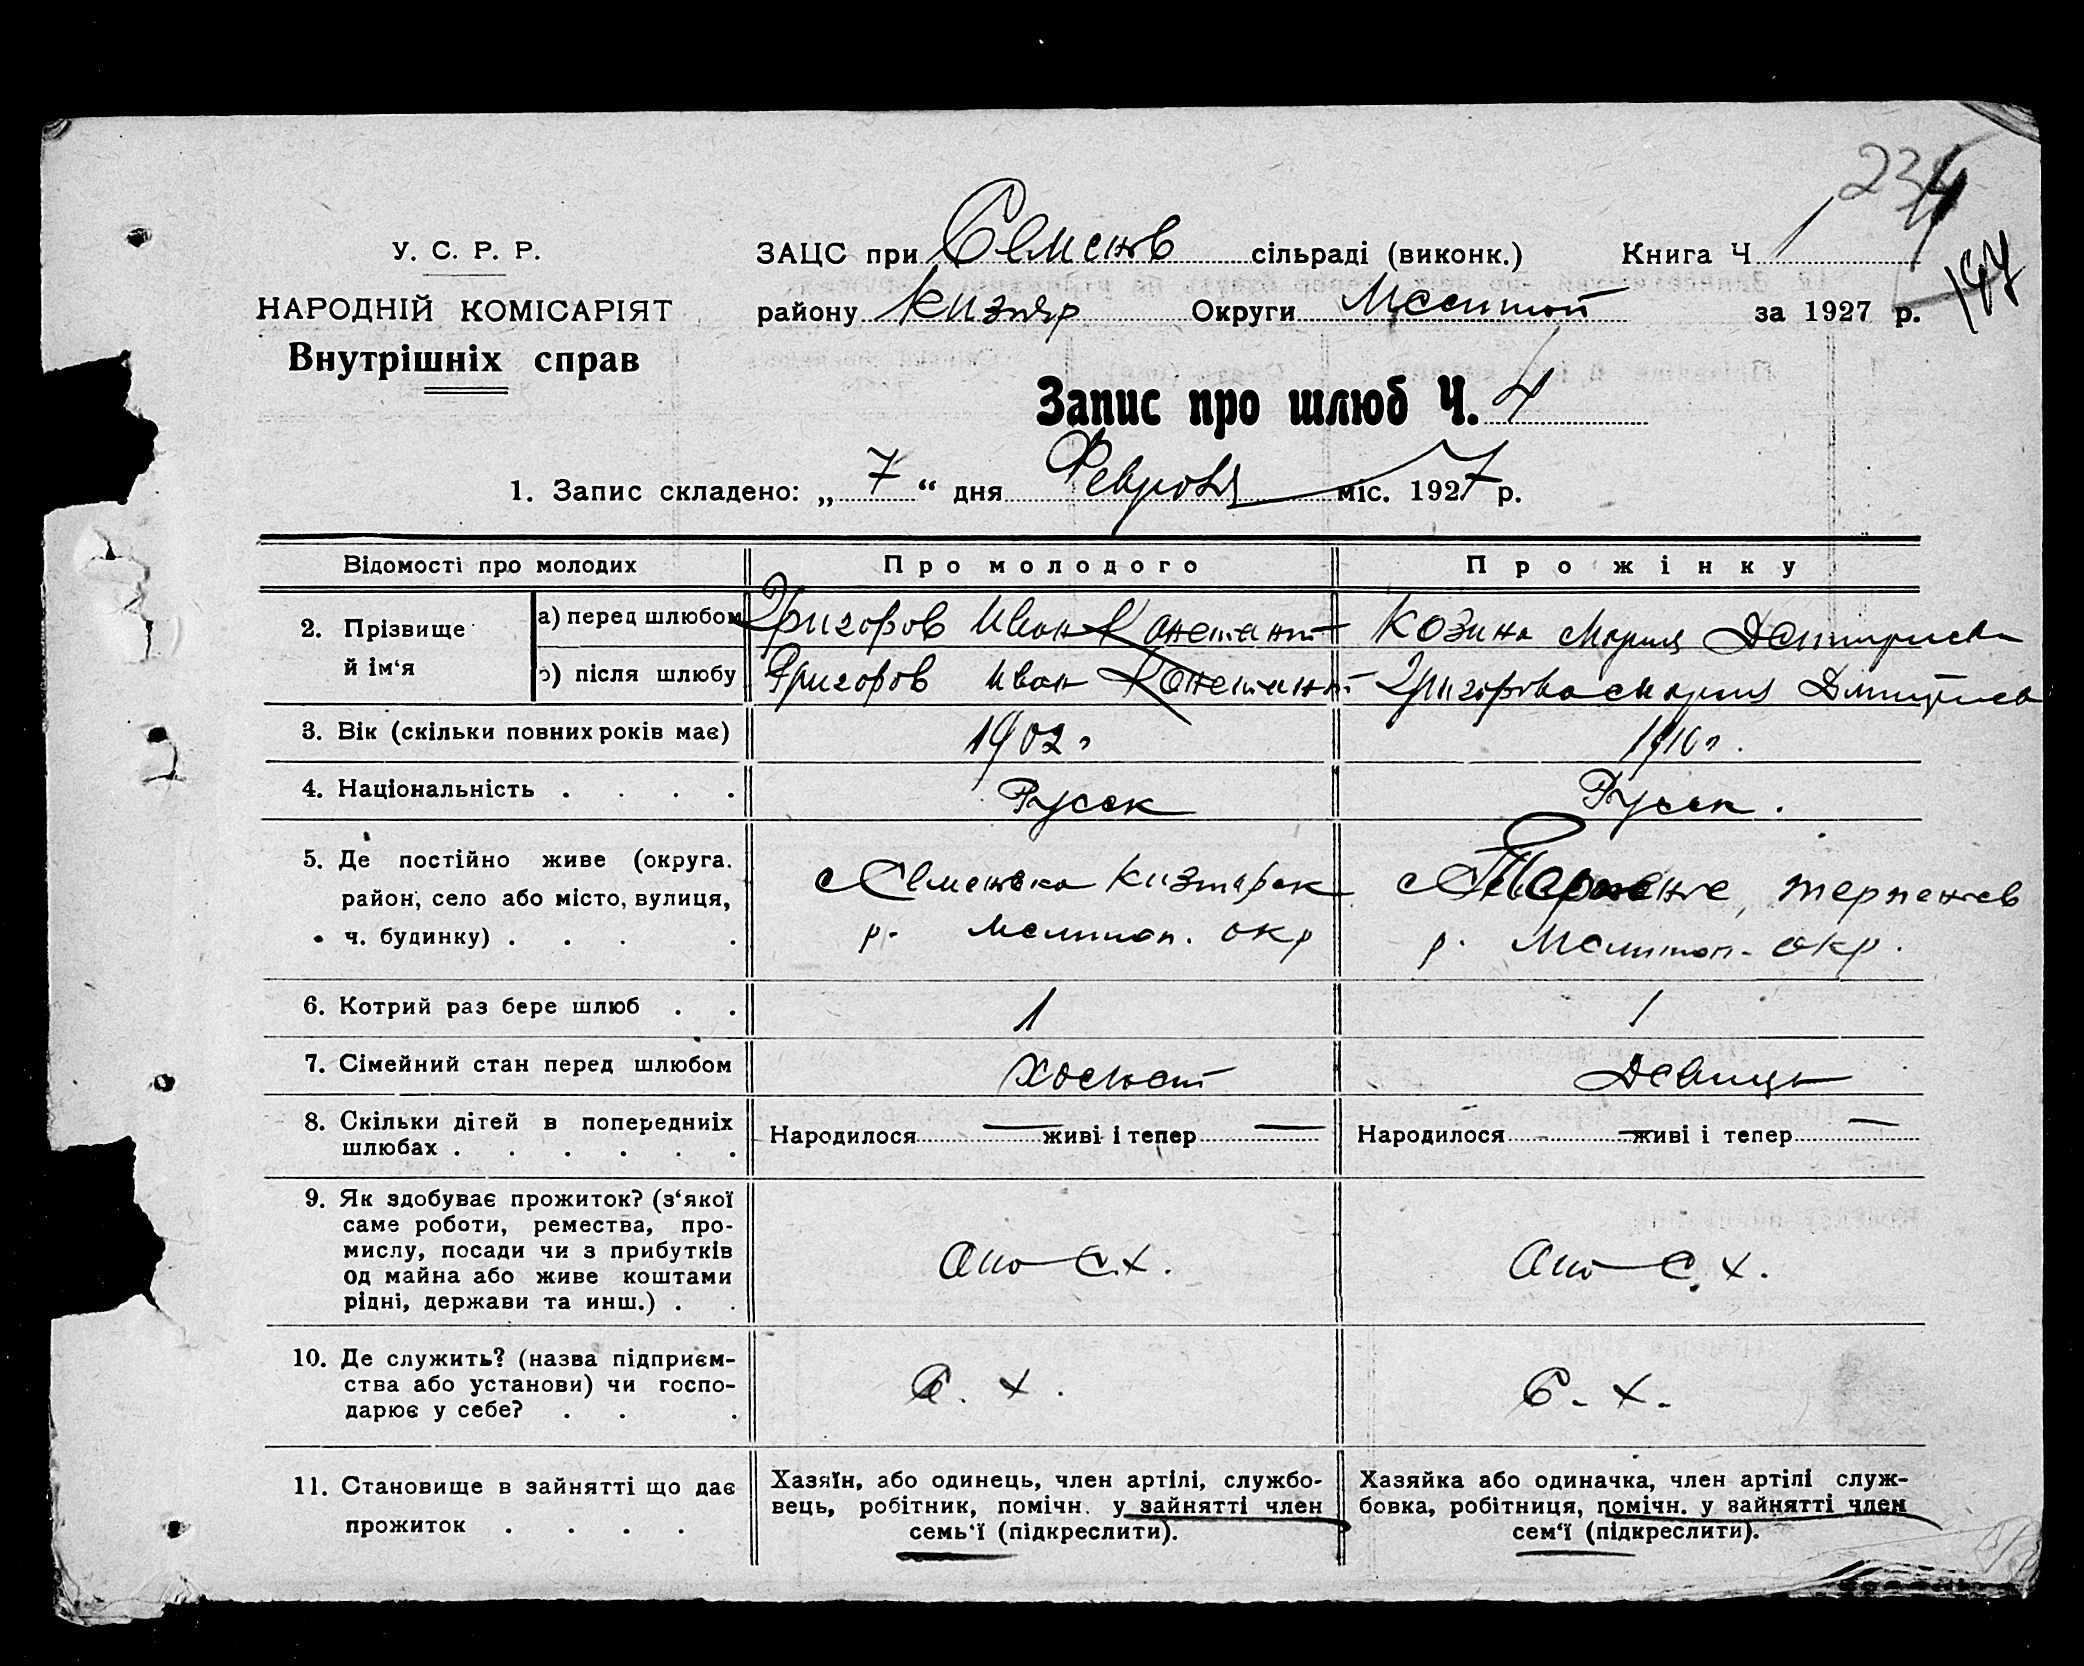 234
147
У. С. Р. Р.
НАРОДНІЙ КОМІСАРІЯТ
Внутрішніх справ
ЗАЦС при Семенов сільраді (виконк.) Книга Ч 1
району Кизияр Округи Мелитоп за 1927 р.
Запис про шлюб Ч. 4
1. Запис складено: „ 7 “ дня Февроля міс. 1927 р.
Відомості про молодих Про молодого Про жінку
2. Прізвище й ім‘я
а) перед шлюбом Григоров Иван Констант Козина Мария Дмитриевн
б) після шлюбу Григоров Иван Констант Григорова Мария Дмитриев
3. Вік (скільки повних років має) 1902 г 1910 г.
4. Національність . . . . Русск Русск.
5. Де постійно живе (округа. район, село або місто, вулиця, ч. будинку) . . . .
с Семеновка Кизиярск
р. Мелитоп. окр
с Терпение, Терпениев
р. Мелитоп. окр.
6. Котрий раз бере шлюб . . 1 1
7. Сімейний стан перед шлюбом Холост Девица
8. Скільки дітей в попередниіх шлюбах . . . . . .
Народилося — живі і тепер — Народилося — живі і тепер —
9. Як здобуває прожиток? (з‘якої
саме роботи, ремества, про-
мислу, посади чи з прибутків
од майна або живе коштами
рідні, держави та инш.) . .
С. Х. С. Х.
10. Де служить? (назва підприєм-
ства або установи) чи госпо-
дарює у себе? . . .
С. Х. С. Х.
11. Становище в зайнятті що дає
прожиток . . . .
Хазяїн, або одинець, член артілі, службо-
вець, робітник, помічн. у зайнятті член
семь‘ї (підкреслити).
Хазяйка або одиначка, член артілі служ-
бовка, робітниця, помічн. у зайнятті член
сем‘ї (підкреслити).